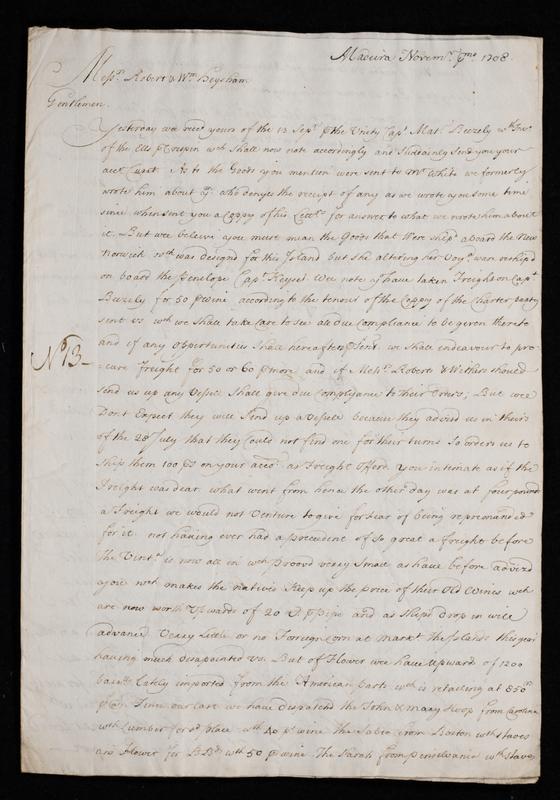 Madeira Novemr. pmo 1708
Messrs. Robert & Wm. Heysham
Gentlemen
Yesterday we recd. yours of the 13 Sepr. p the Unity Capt. Mat. Beezely wth. Invo.
of the Ells wch. shall now note accordingly and Suddainly Send you your
acct. Curt. As to the Goods you mention were sent to Mr White we formerly
wrote him about ym. who denyes the receipt of any as we wrote you some time
since when sent you a Coppy of his Letter for answer to what we wrote him about
it. But wee believe you must mean the Goods that were shipt aboard the New
Norwich wch. was designed for this Island but she altering her Voyg. was reshipd
on board the Penelope Capt. Keyser Wee note yo. have taken Freight on Capt.
Beezely for 50 p wine according to the tenour of the Coppy of the Charter party
sent us wch. we shall take care to see all due Complyance to be given thereto
and if any oppertunitys shall hereafter psent we shall endeavour to pro-
No. 13
cure Freight for 50 or 60 p more and if Messrs. Roberts & Withers should
send us up any Vessell shall give due Complyance to their Orders; But wee
Dont Expect they will Send up a Vessell because they advisd us in theirs
of the 28 July that they could not find one for their turns So orders us to
ship them 100 ps on your acco. as Freight offerd you intimate as if the
Freight was dear what went from hence the other day was at four pound
a Freight we would not Venture to give for fear of being reprimanded
for it not having ever had a precedent of So great a freight before
The Vinta. is now all in wch proovd verey Small as have before advised
you wch. makes the natives keep up the price of their Old Wines wch
are now worth Upwards of 20 p Pipe and as Ships drop in will
advance Verey Little or no Foreign corn at markt. the Islands this year
having much disapointed us. But of Flower wee have upward of 1200
barells Lately imported from the American parts wch. is retailing at 850
Since our last we have dispatcht the John & Mary Sloop from Carolina
wth Lumber for sd. place wth 40 p wine The Sabia from Boston wth Staves
and Flower for BBds. wth 50 p wine The Sarah from Pensilvania wth Staves